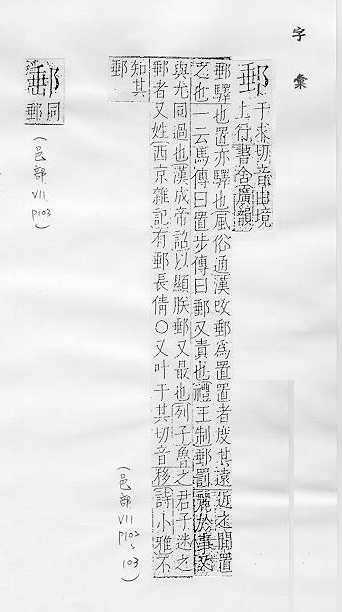 字彙
郵
于求切音由境
上行書舍廣韻
郵驛也置亦驛也風俗通漢改郵為置置者度其遠近之間置
之也一云馬傳曰置步傳曰郵又責也禮王制郵罰麗於事又
與尤同過也漢成帝詔以顯朕郵又最也列子魯之君子迷之
郵者又姓西京雜記有郵長倩○又叶于其切音移詩小雅不
知其
郵
(邑部 VII P102、103)
同
郵
(邑部 VII P103)